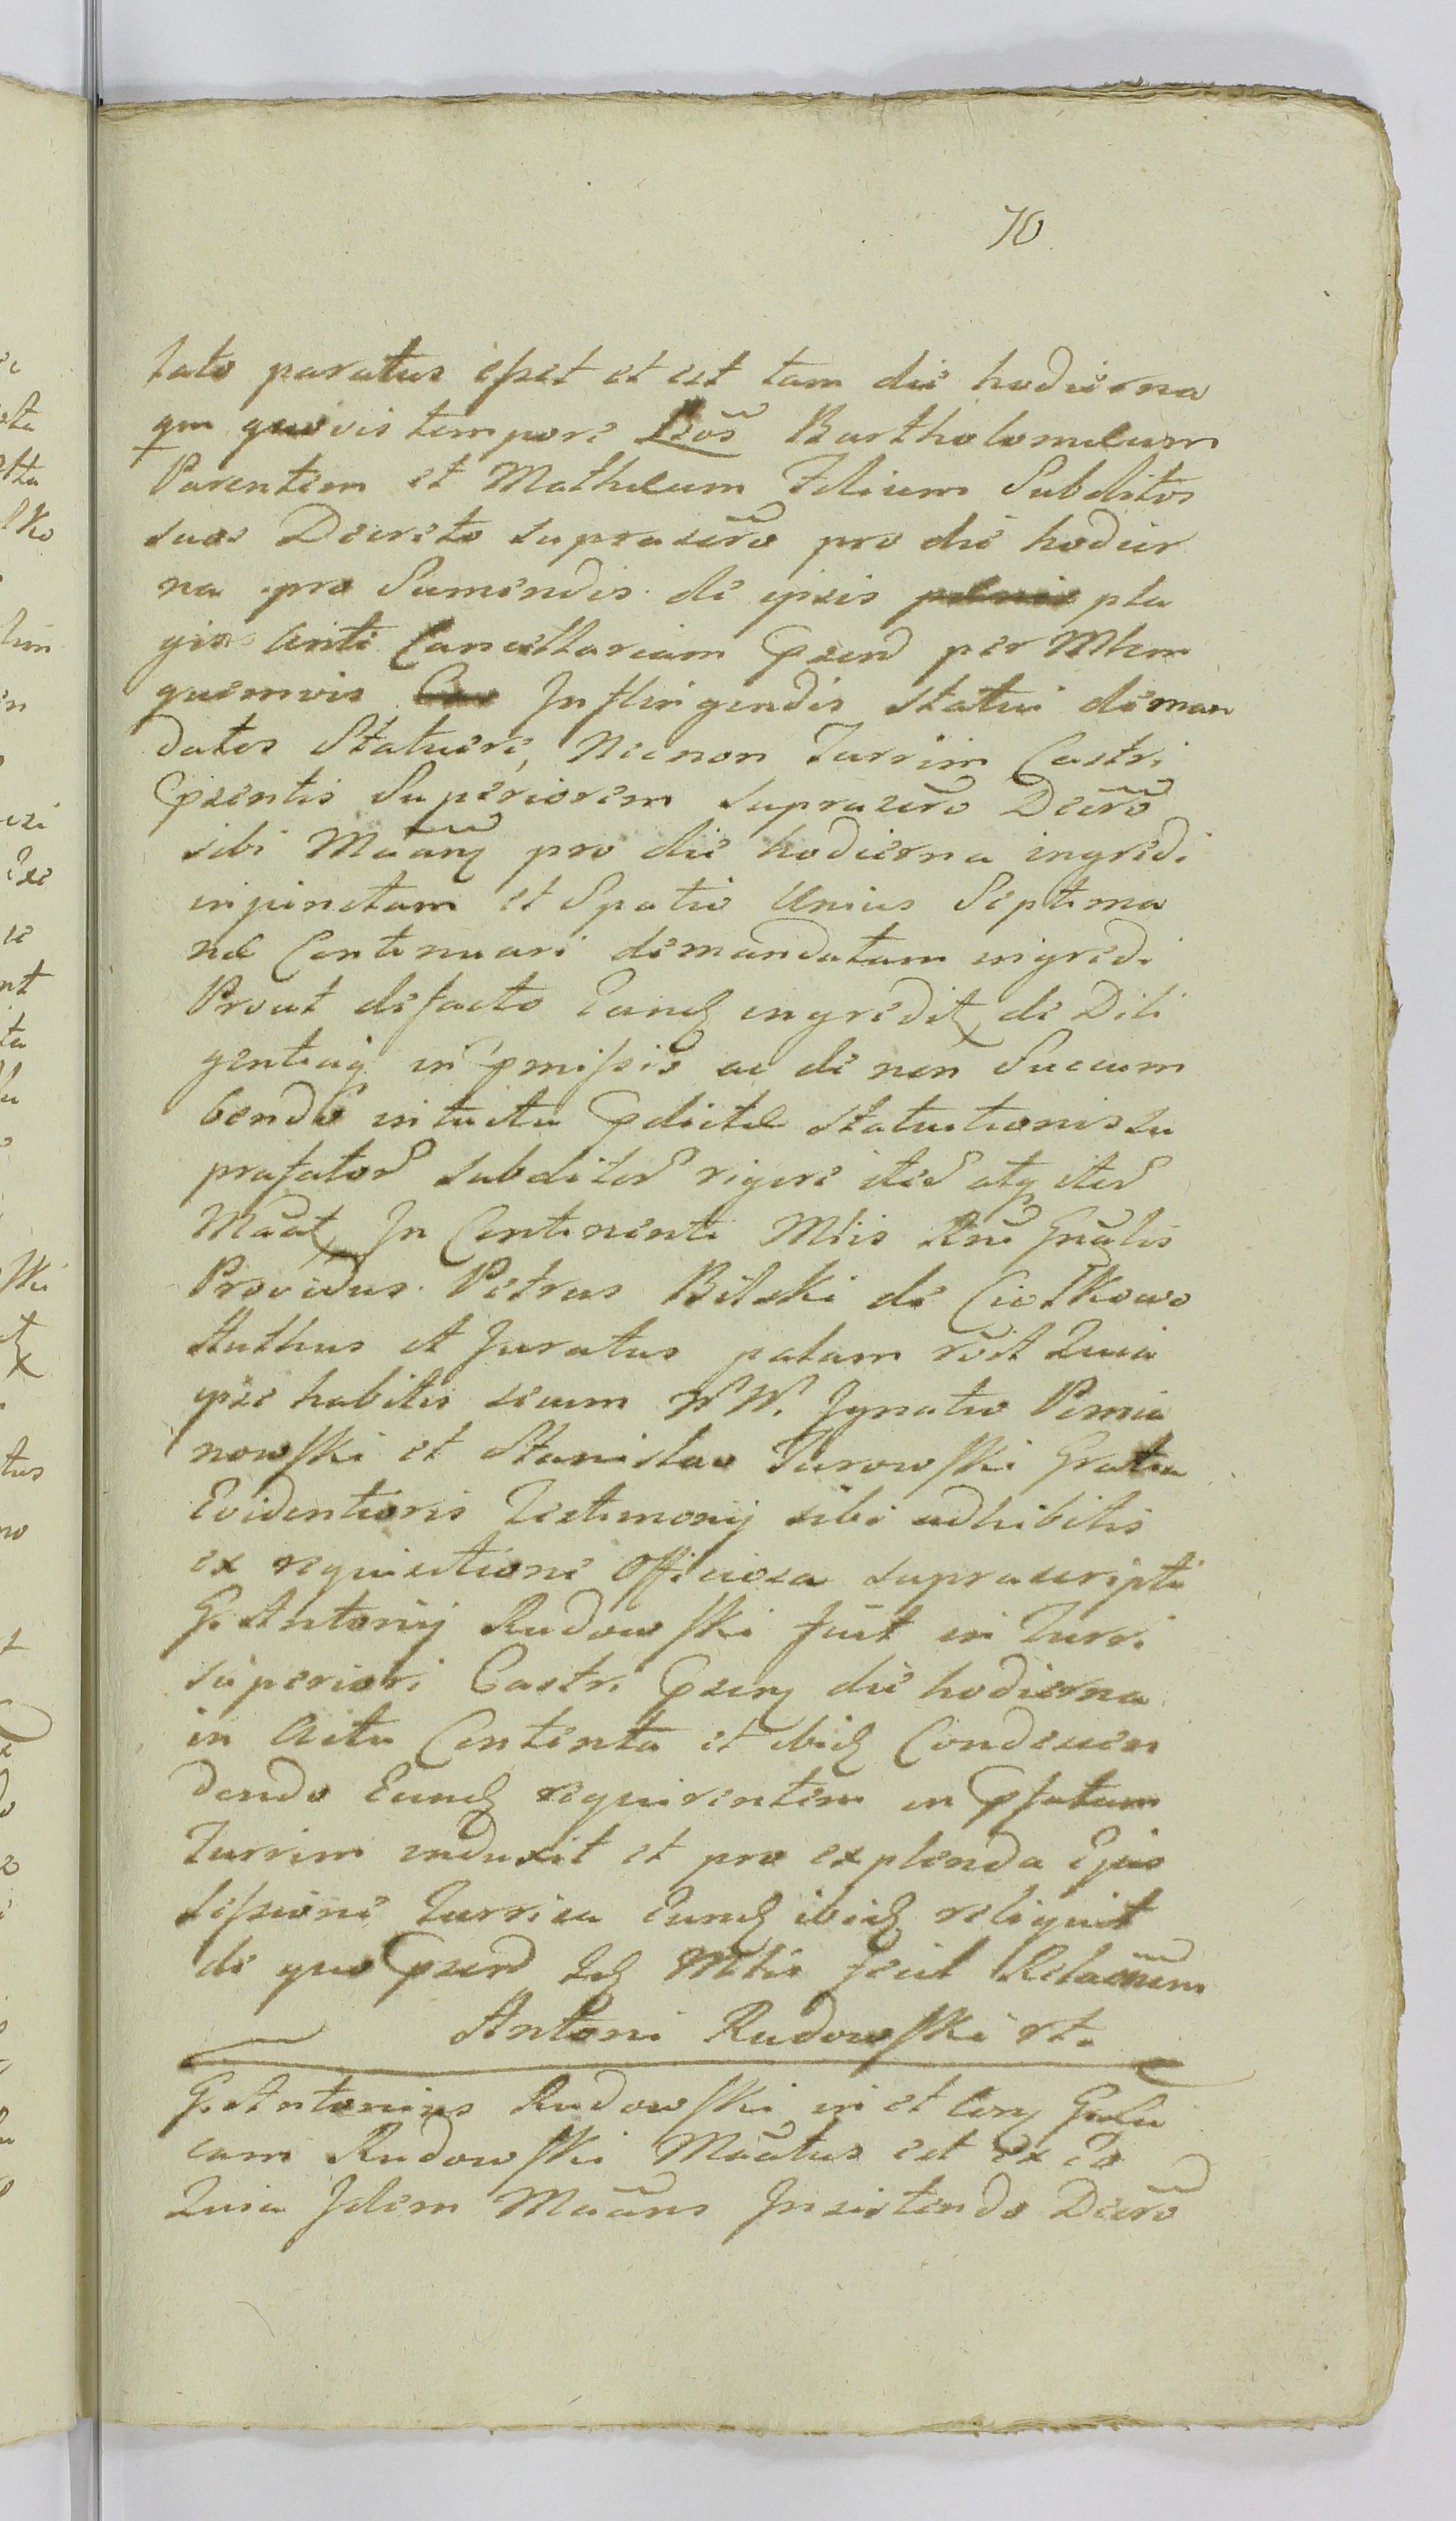 70
tato paratus esset et est tam die hodierna
qm quovis tempore Lēōs Bartholomeum
Parentem et Matheum Filium Subditos
suos Decreto suprascr̄o pro die hodier
na pro Sumendis de ipsis pla
gis Ante Cancellariam Psend per Mlem
quemvis Infligendis statui deman
datos Statuere, Necnon Turrim Castri
Psentis Superiorem suprascr̄o Decr̄o
sibi Mãanq pro die hodierna ingredi
injunctam et Spatio Unius Septima
nae Continuari demandatam ingredi
Prout defacto Eandq ingredit de Dili
gentiaq in Pmissis ac de non Succum
bendo intuitu Pdictae statuitionis su
prafatoR subditoR rigore iteR atq iteR
Mãat, In Continenti Mlis Rni Gnãlis
Providus Petrus Bilski de Ciołkowo
Authus et Juratus palam rōit Quia
ipse habitis secum W W. Ignatio Pomia
nowski et Stanislao Turowski Gratia
Evidentioris Testimonij sibi adhibitis
ex requisitione Officiosa suprascripti
G. Antonij Rudowski fuit in Turri
superiori Castri Psenq die hodierna
in Actu Contenta et ibidq Condescen
dendo Eundq requirentem in Pfatam
Turrim induxit et pro explenda Ejus
sessione Turrica Eundq ibidq reliquit
de quo Psend Idq Mlis fecit Relaōnem
Antoni Rudowski st.
G. Antonius Rudowski in et conq G. Lu
cam Rudowski Mãatus est ex Eo
Quia Idem Mãans Insistendo Decr̄o